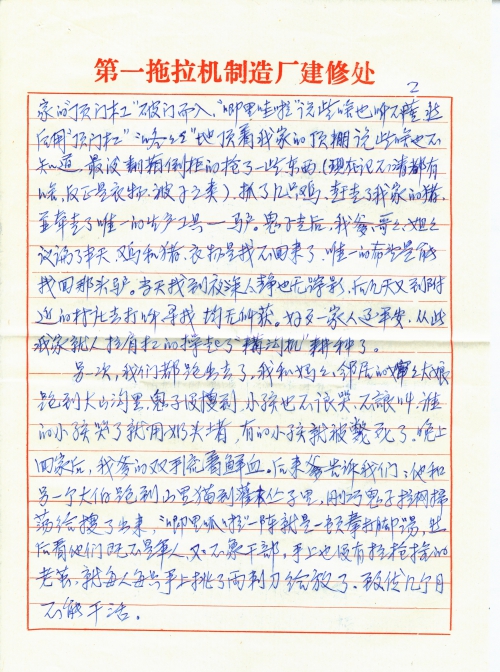 第一拖拉机制造厂建修处
2
家的"顶门杠"破门而入,"唧里哇啦"说些啥也听不懂,然
后用"顶门杠""咚咚"地顶着我家的顶棚说些啥也不
知道,最后翻箱倒柜的抢了一些东西(现在记不清都有
啥,反正是衣物、被子之类),抓了几只鸡,赶走了我家的猪,
至牵走了唯一的生产工具——驴。鬼子走后,我爹、哥、姐
议论了半天,鸡和猪、衣物是找不回来了,唯一的希望是能
找回那头驴。当天找到夜深人静也无踪影,后几天又到附
近的村庄去打听寻找,均无所获。好在一家人还平安,从此
我家就人拉肩扛的撑起了"犁沟机"耕种了。
另一次,我们都跑出去了,我和妈、邻居的大娘
跑到大山沟里,鬼子没搜到,小孩也不许哭、不许叫,谁
的小孩哭了就用奶头堵,有的小孩就被毙死了。晚上
回家后,我爹的双手流着鲜血。后来爹告诉我们:他和
另一个大伯跑到山里猫到灌木丛子里,刚巧鬼子拉网扫
荡给搜了出来,"唧里呱啦"一阵就是一顿拳打脚踢,然
后看他们既不是军人,又不像干部,手上也没有拉枪拴的
老茧,就每人每只手上挑了两刺刀给放了。致使几个月
不能干活。